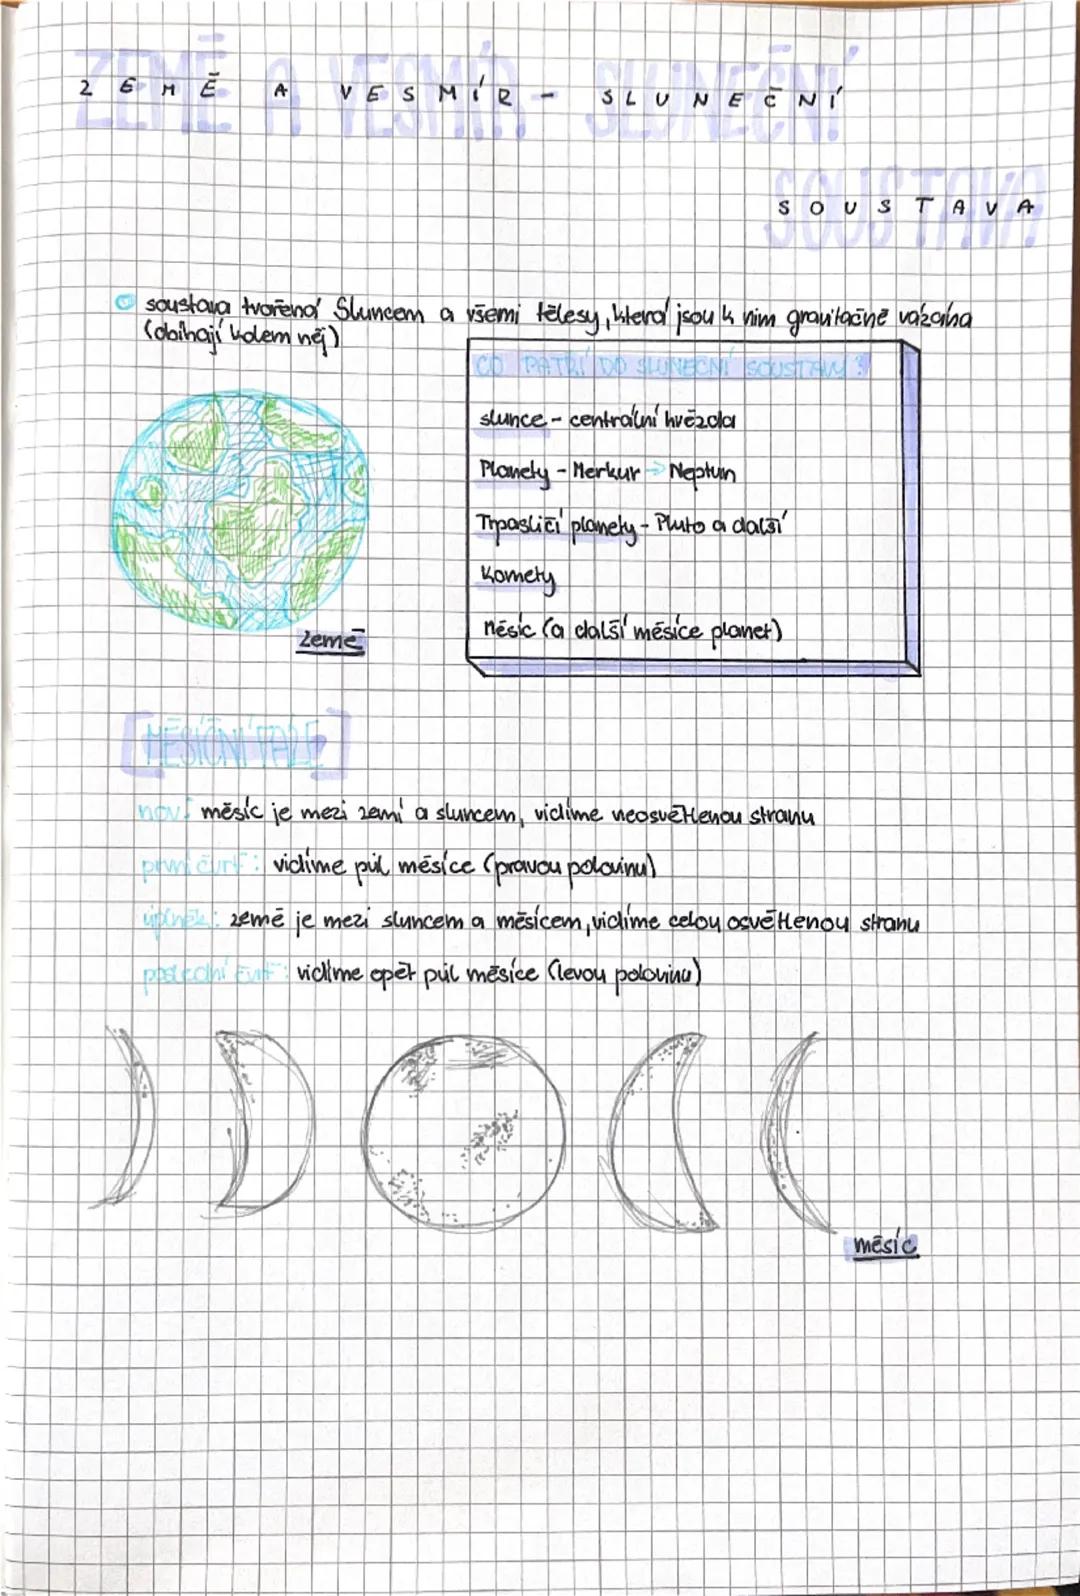 ZEMĚ A VESMÍR - SLUNEČNÍ
SOUSTAVA
soustava tvořená Sluncem a všemi tělesy, která jsou k nim gravitačně vázána
(obíhají kolem něj)
CO PATŘÍ DO SLUNEČNÍ SOUSTAVY?
slunce - centrální hvězda
Planety - Merkur → Neptun
Trpasličí planety - Pluto a další
Komety
měsíc (a další měsíce planet)
Země
[MĚSÍČNÍ FÁZE]
nov: měsíc je mezi zemí a sluncem, vidíme neosvětlenou stranu
první čtvrť: vidíme půl měsíce (pravou polovinu)
úplněk: země je mezi sluncem a měsícem, vidíme celou osvětlenou stranu
poslední čtvrť: vidíme opět půl měsíce (levou polovinu)
měsíc